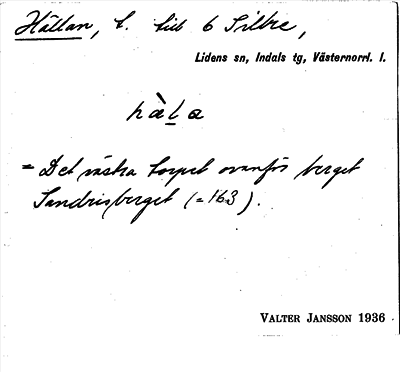 Hällan, t. till 6 Sillre,
Lidens sn, Indals tg, Västernorrl. l.
hàla
= Det västra torpet ovanför berget
Sandrisberget (= 163).
VALTER JANSSON 1936